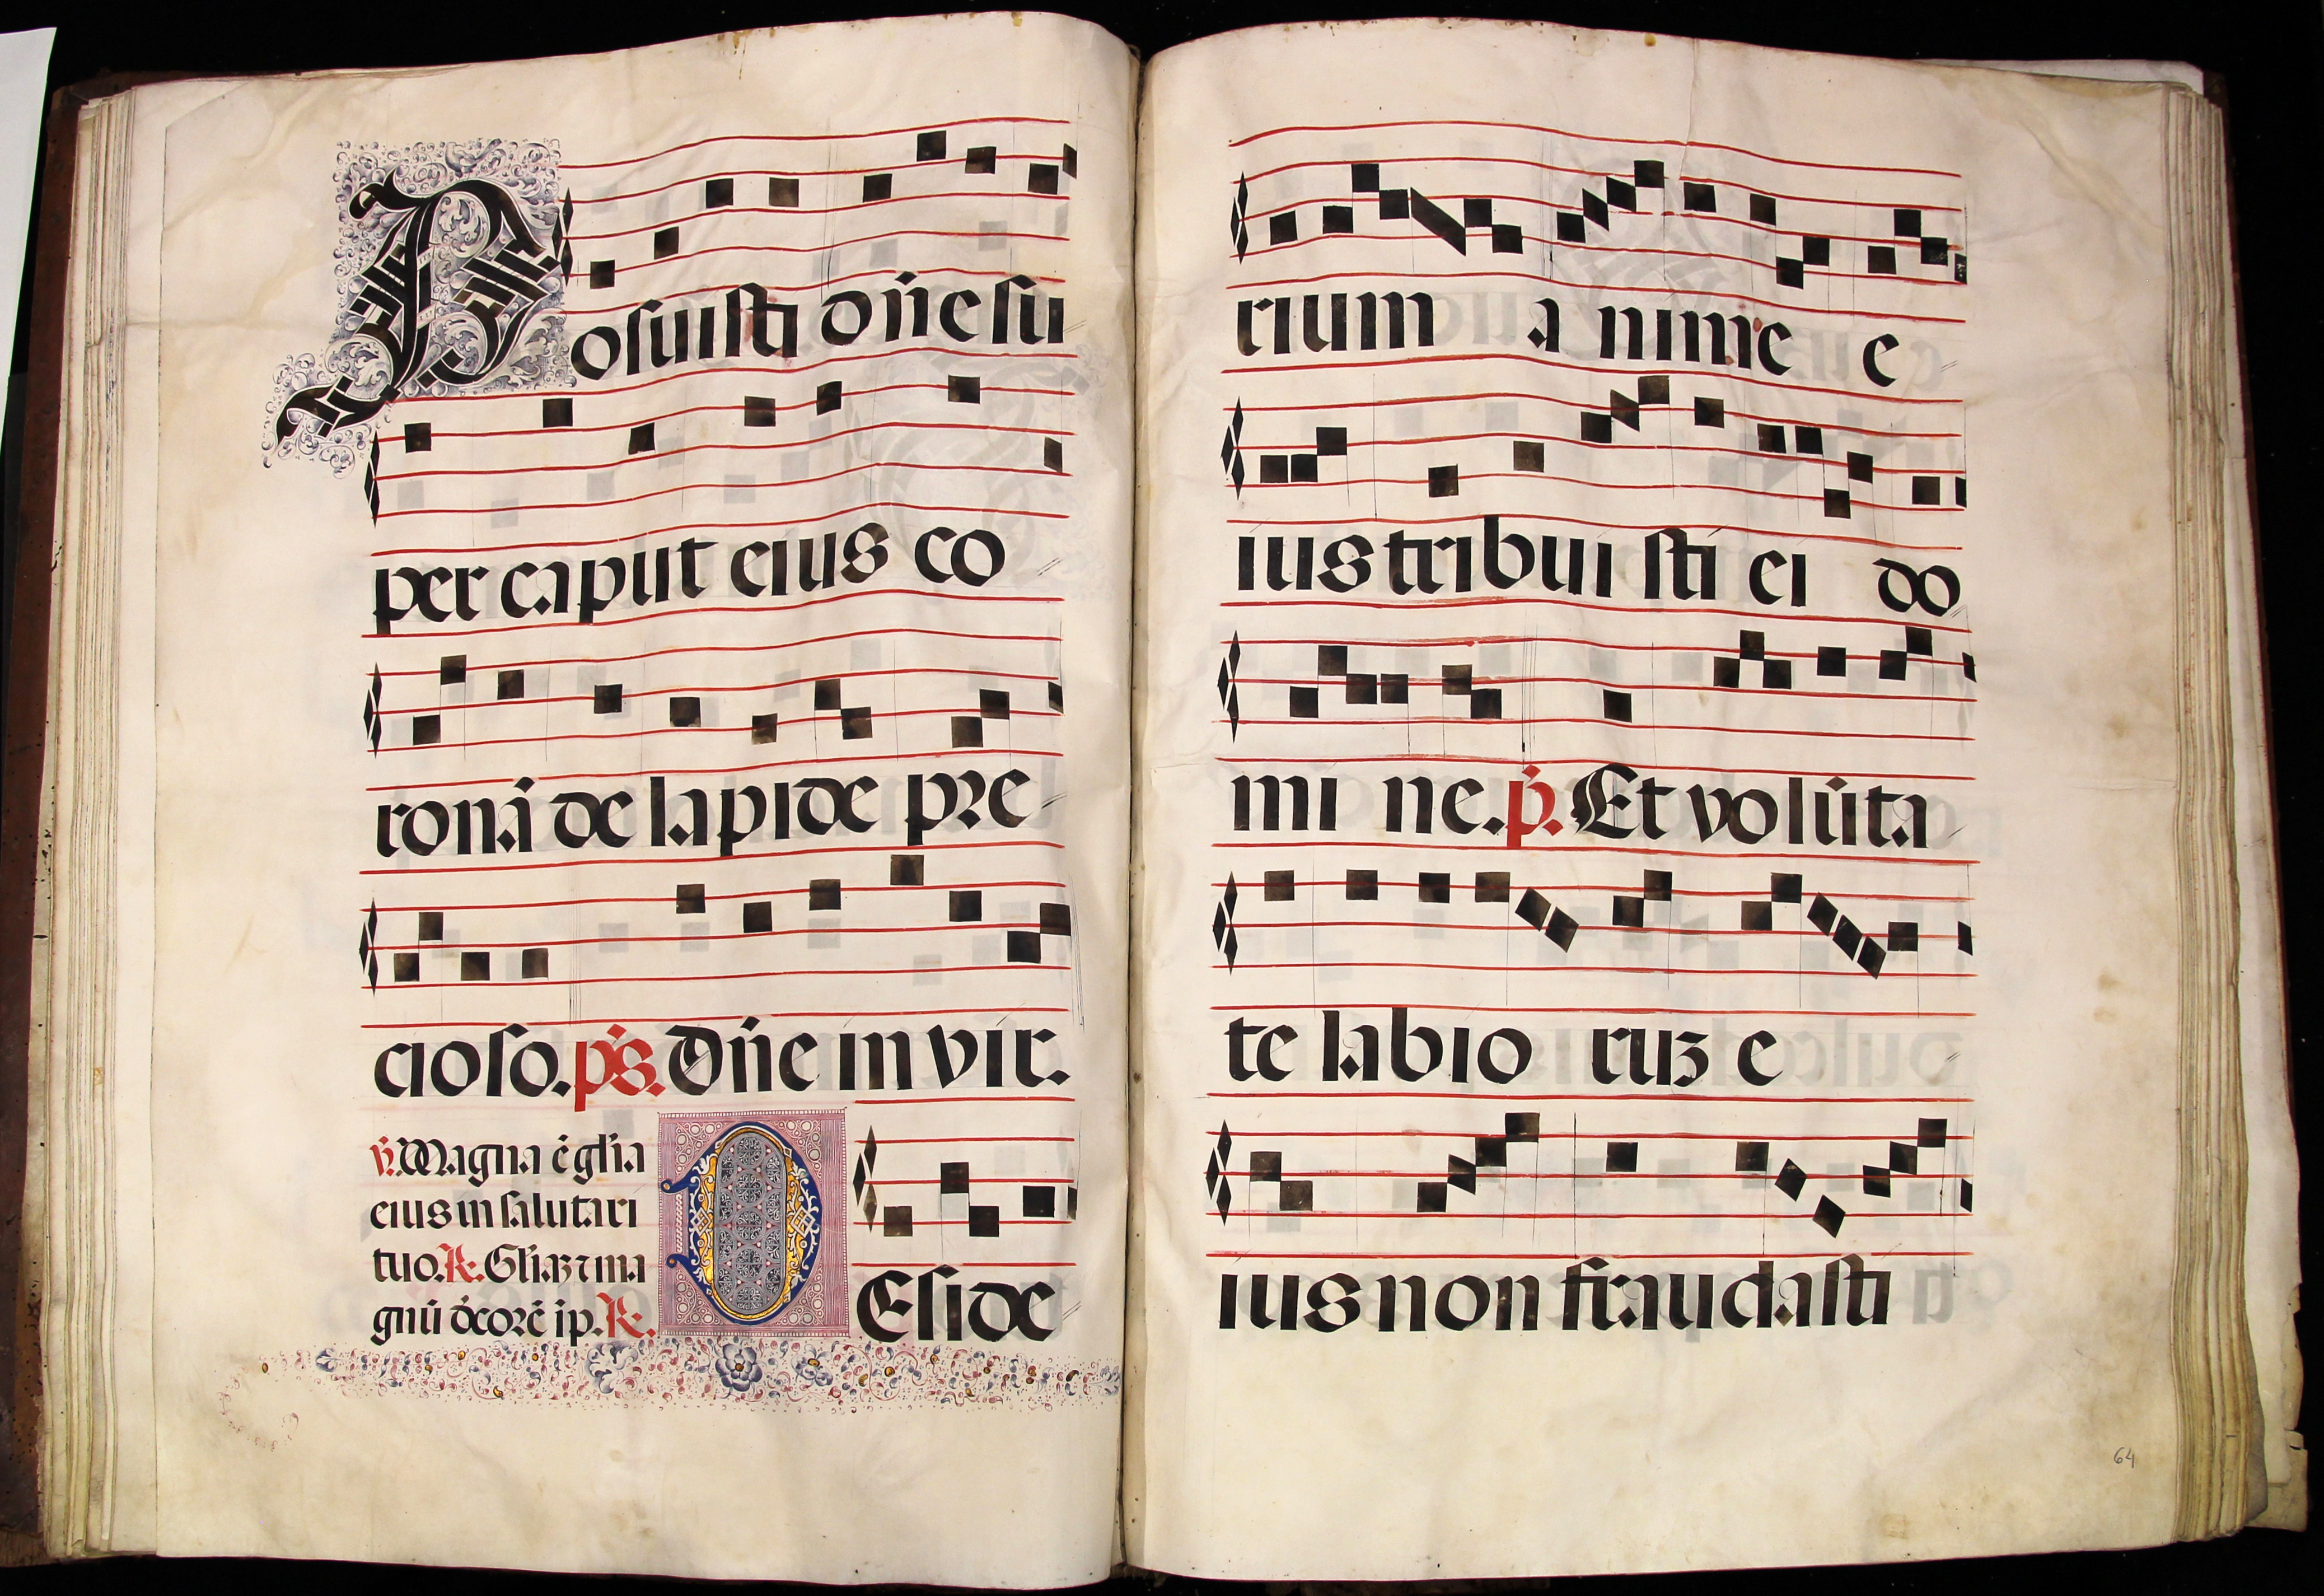 Posuisti dñe su
per caput eius co
ronã de lapide pre
cioso. p̃s. Dñe in vir.
v̄. Magna ẽ glia
eius in salutari
tuo. R. Gliaʒ ⁊ ma
gnũ d̾corẽ ip. R.
DEside
rium anime e
ius tribuisti ei do
mine. p̄. Et volũta
te labioruʒ e
ius non fraudasti
64